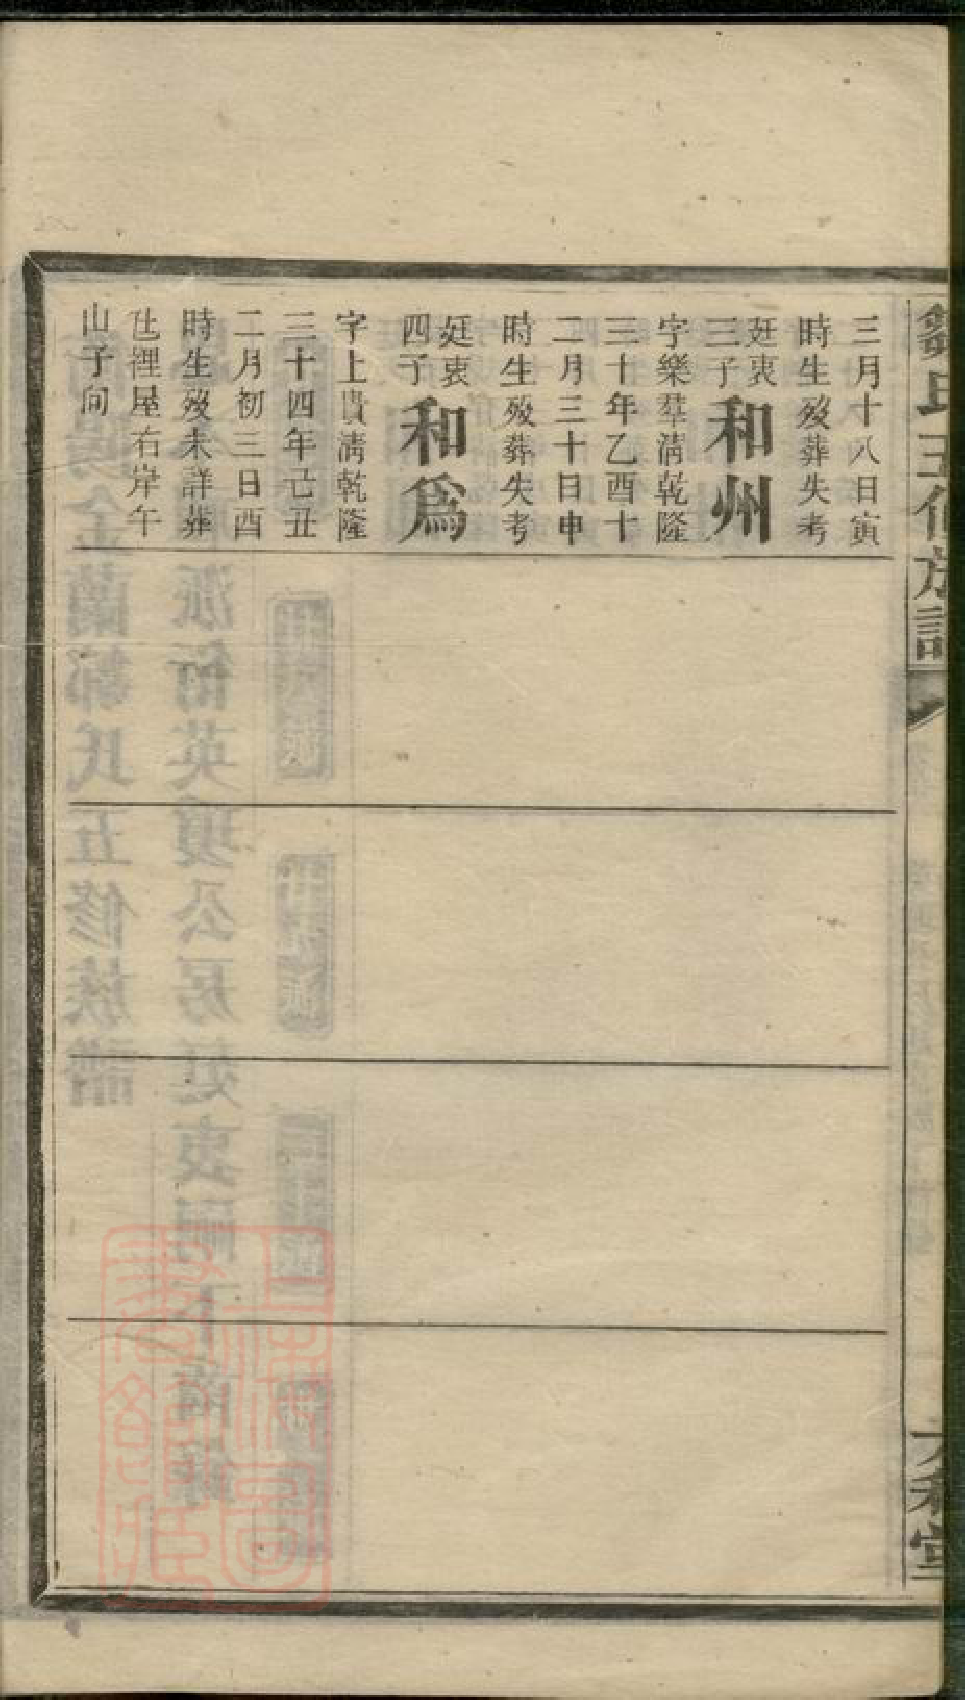 三月十八日寅
時生歿葬失考
娗衷
三子
和州
字樂羣淸乾隆
三十年乙酉十
二月三十日申
時生歿葬失考
娗衷
四子
和爲
字上貴淸乾隆
三十四年己丑
二月初三日酉
時生歿未詳葬
屋右岸午
山子向
鄒氏五修族譜